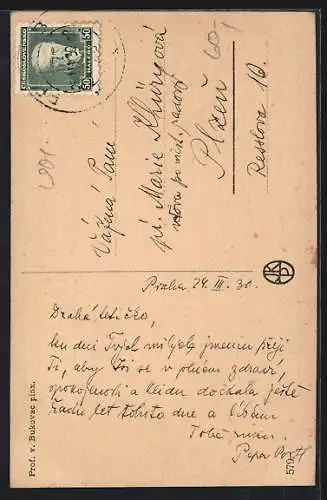 ČESKOSLOVENSKO
50 HALÉŘŮ 50
Vážená Paní
pí. Marie
vdova po
Plzeň
Resslova 16
60-
Praha 24. III. 30.
Drahá tetičko,
ku dni Tvých milých jmenin přeji
Ti, aby Jsi se v plném zdraví,
spokojenosti a klidu dočkala ještě
řadu let tohoto dne a líbám
Tobě ruku.
Pepa
Prof. v. Bukovac pinx.
579